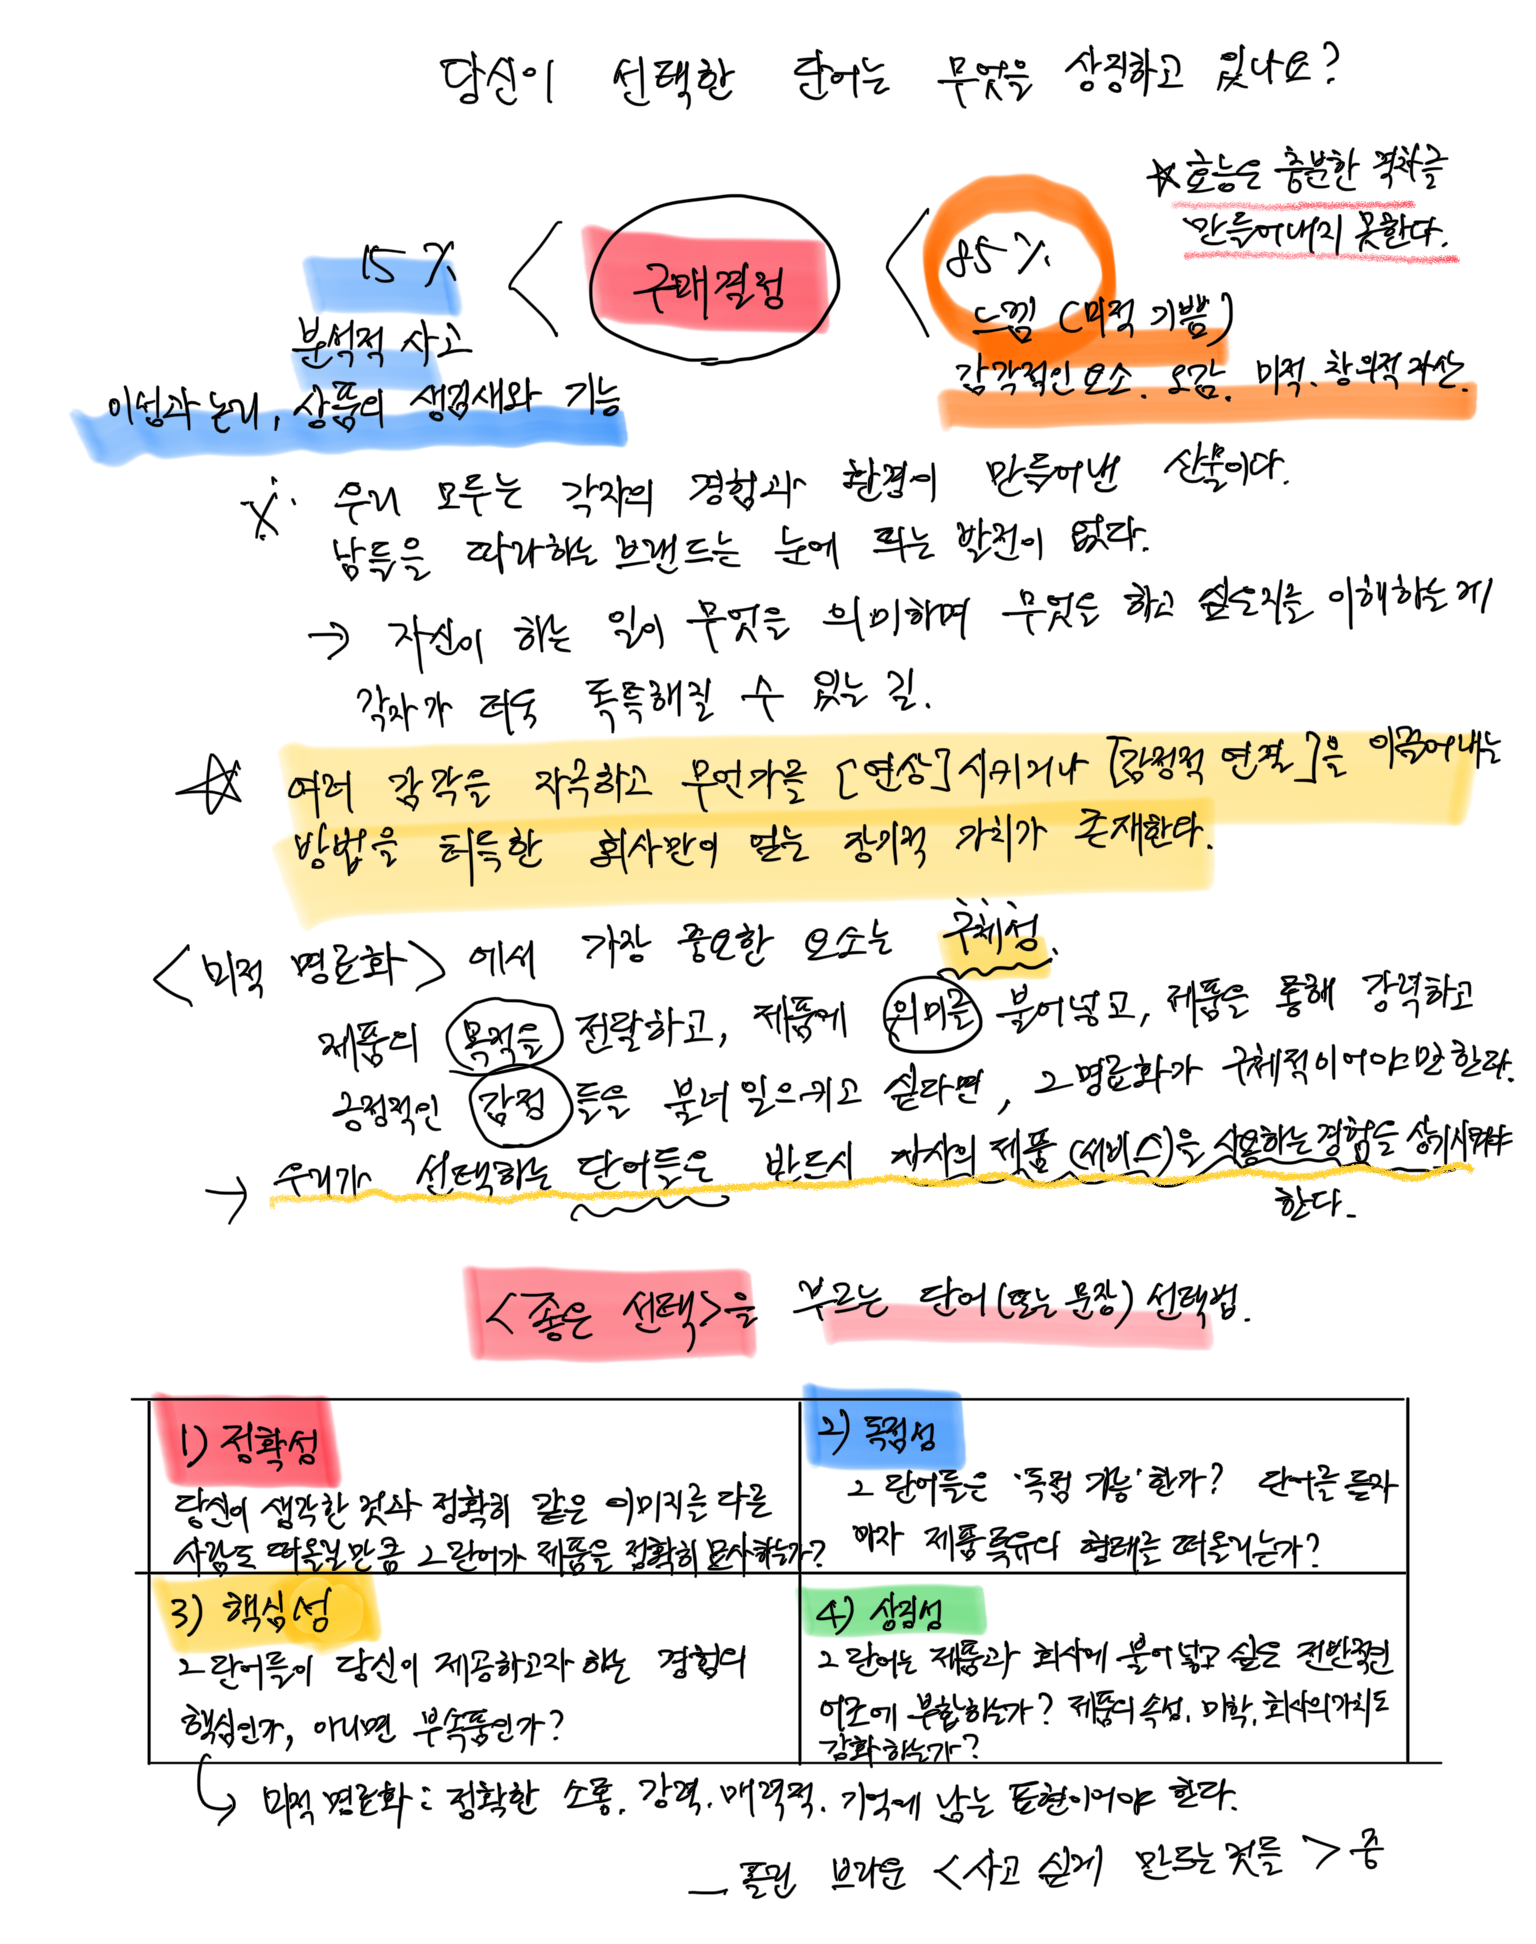 당신이 선택한 단어는 무엇을 상징하고 있나요?
☆효능은 충분한 격차를
만들어내지 못한다.
15% < 구매결정 < 85%
느낌 (미적 기쁨)
분석적 사고
감각적인 요소. 오감. 미적. 창의적 자산.
이성과 논리, 상품의 생김새와 기능
※ 우리 모두는 각자의 경험과 환경이 만들어낸 산물이다.
남들을 따라하는 브랜드는 눈에 띄는 발전이 없다.
→ 자신이 하는 일이 무엇을 의미하며 무엇을 하고 싶은지를 이해하는 게
각자가 더욱 독특해질 수 있는 길.
☆ 여러 감각을 자극하고 무언가를 [연상]시키거나 [감정적 연결]을 이끌어내는
방법을 터득한 회사만이 얻는 장기적 가치가 존재한다.
<미적 명료화>에서 가장 중요한 요소는 구체성.
제품의 목적을 전달하고, 제품에 의미를 불어넣고, 제품을 통해 강력하고
긍정적인 감정들을 불러 일으키고 싶다면, 그 명료화가 구체적이어야만 한다.
→ 우리가 선택하는 단어들은 반드시 자사의 제품(서비스)을 사용하는 경험을 상기시켜야
한다.
<좋은 선택>을 부르는 단어(또는 문장) 선택법.
1) 정확성
당신이 생각한 것과 정확히 같은 이미지를 다른
사람도 떠올릴만큼 그 단어가 제품을 정확히 묘사하는가?
2) 독점성
그 단어들은 '독점 가능'한가? 단어를 듣자
마자 제품 특유의 형태를 떠올리는가?
3) 핵심성
그 단어들이 당신이 제공하고자 하는 경험의
핵심인가, 아니면 부속품인가?
4) 상징성
그 단어는 제품과 회사에 불어넣고 싶은 전반적인
어조에 부합하는가? 제품의 속성, 미학, 회사의 가치도
강화하는가?
↳ 미적 명료화: 정확한 소통. 강력. 매력적. 기억에 남는 표현이어야 한다.
— 폴린 브라운 <사고 싶게 만드는 것들> 중